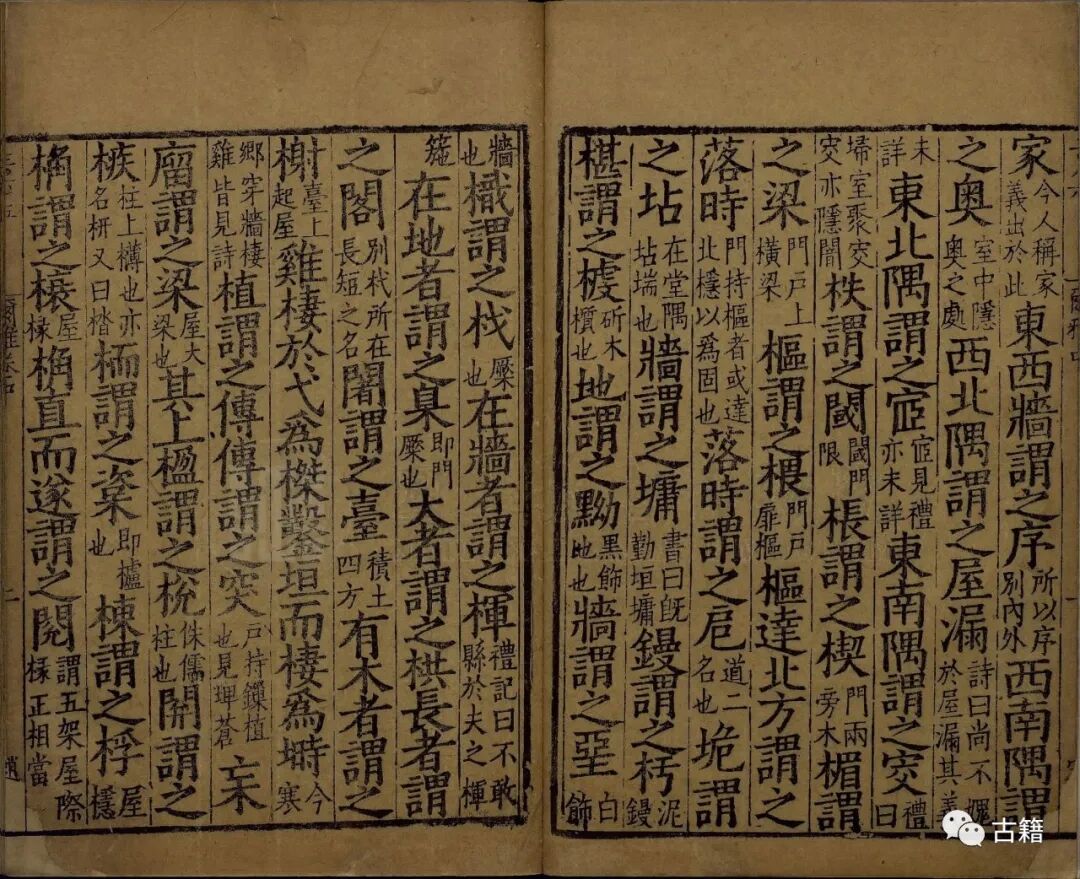 家今人稱家義出於此東西牆謂之序所以序別內外西南隅謂
之奧室中隱奧之處西北隅謂之屋漏詩曰尚不媿於屋漏其義
未詳東北隅謂之宧宧見禮亦未詳東南隅謂之窔禮曰
埽室聚窔窔亦隱闇柣謂之閾閾門限棖謂之楔門兩旁木楣謂
之梁門戶上橫梁樞謂之椳門戶扉樞樞達北方謂之
落時門持樞者或達北檼以為固也落時謂之戹道二名也垝謂
之坫在堂隅坫端也牆謂之墉書曰旣勤垣墉鏝謂之杇泥鏝
椹謂之榩斫木櫍也地謂之黝黑飾地也牆謂之堊白飾
牆也樴謂之杙橜也在牆者謂之楎禮記曰不敢縣於夫之楎
箷在地者謂之臬即門橜也大者謂之栱長者謂
之閣別杙所在長短之名闍謂之臺積土四方有木者謂之
榭臺上起屋雞棲於弋為榤鑿垣而棲為塒今寒
鄉穿牆棲雞皆見詩植謂之傳傳謂之突戶持鏁植也見埤蒼杗
廇謂之梁屋大梁也其上楹謂之梲侏儒柱也開謂之
槉柱上欂也亦名枅又曰楷栭謂之楶即櫨也棟謂之桴屋檼
桷謂之榱屋椽桷直而遂謂之閱謂五架屋際椽正相當
爾雅卷中
二
古籍